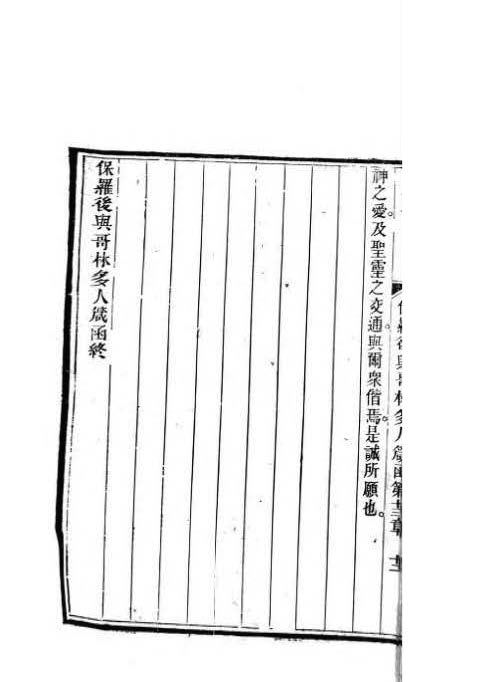 保羅後與哥林多人箴函第十三章 十三
神之愛。及聖靈之交通。與爾衆偕焉。是誠所願也。
保羅後與哥林多人箴函終